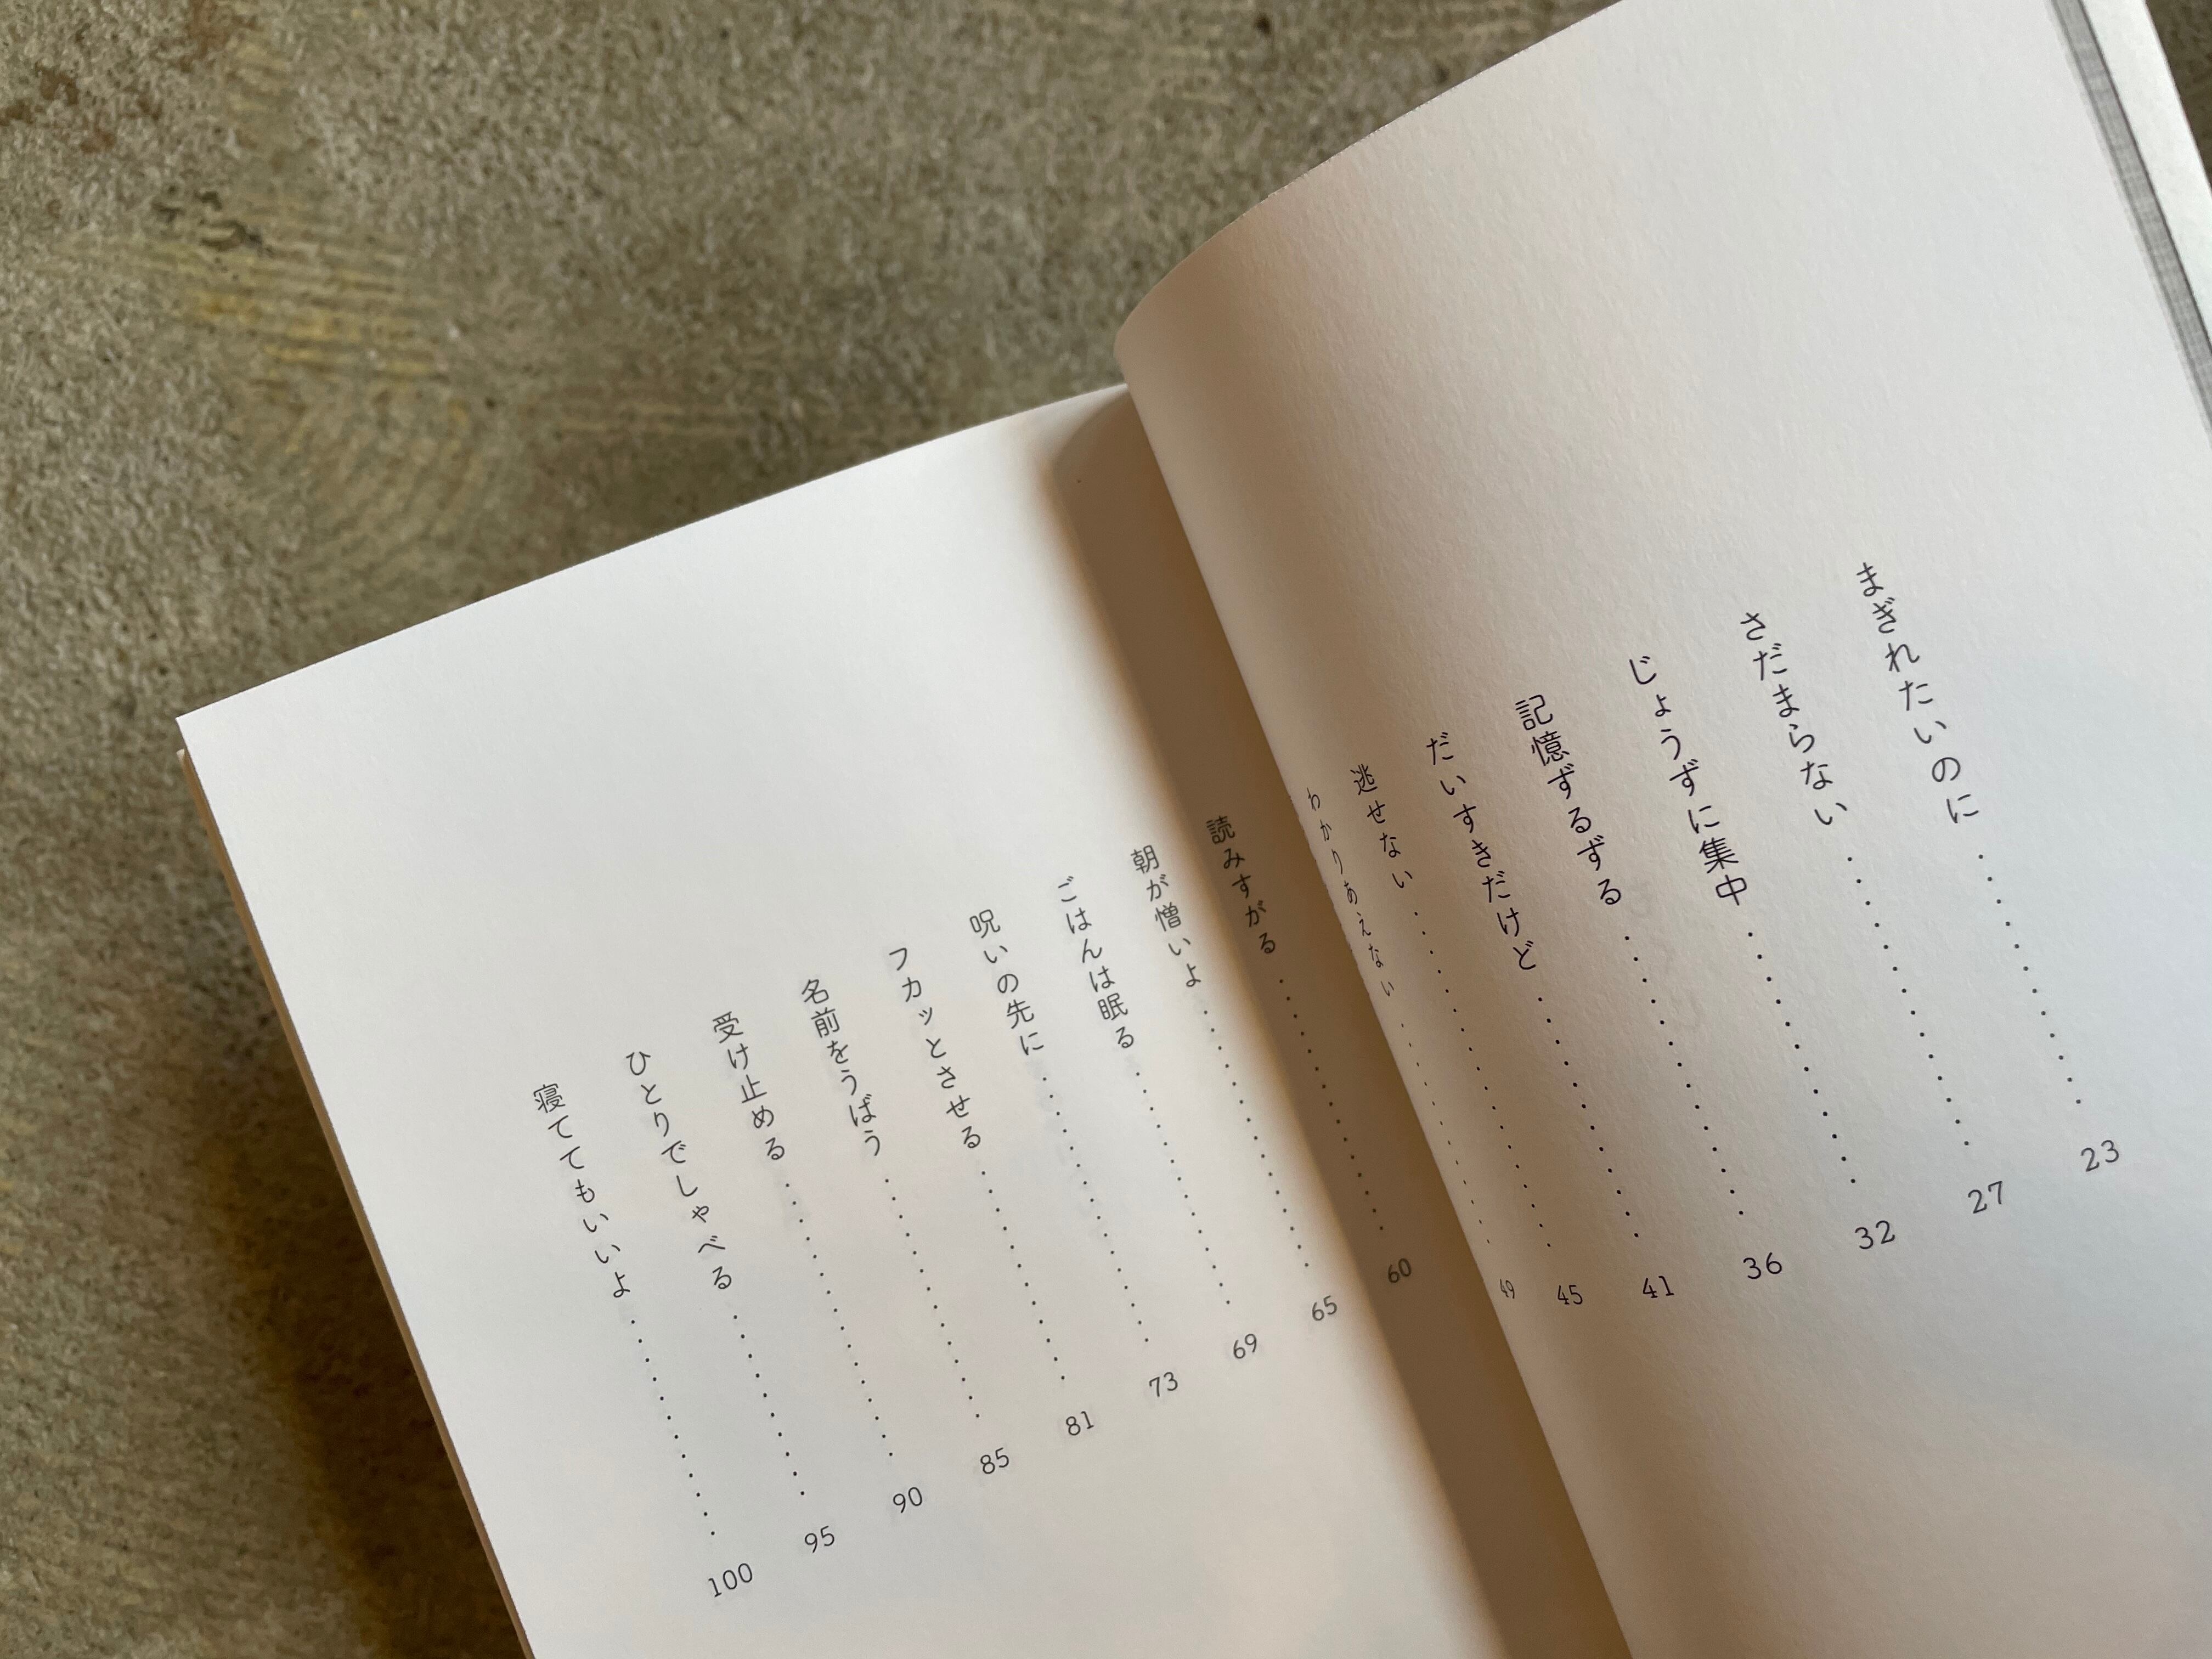 まぎれたいのに……………23
さだまらない……………27
じょうずに集中……………32
記憶ずるずる……………36
だいすきだけど……………41
逃せない……………45
わかりあえない……………49
読みすがる……………60
朝が憎いよ……………65
ごはんは眠る……………69
呪いの先に……………73
フカッとさせる……………81
名前をうばう……………85
受け止める……………90
ひとりでしゃべる……………95
寝ててもいいよ……………100